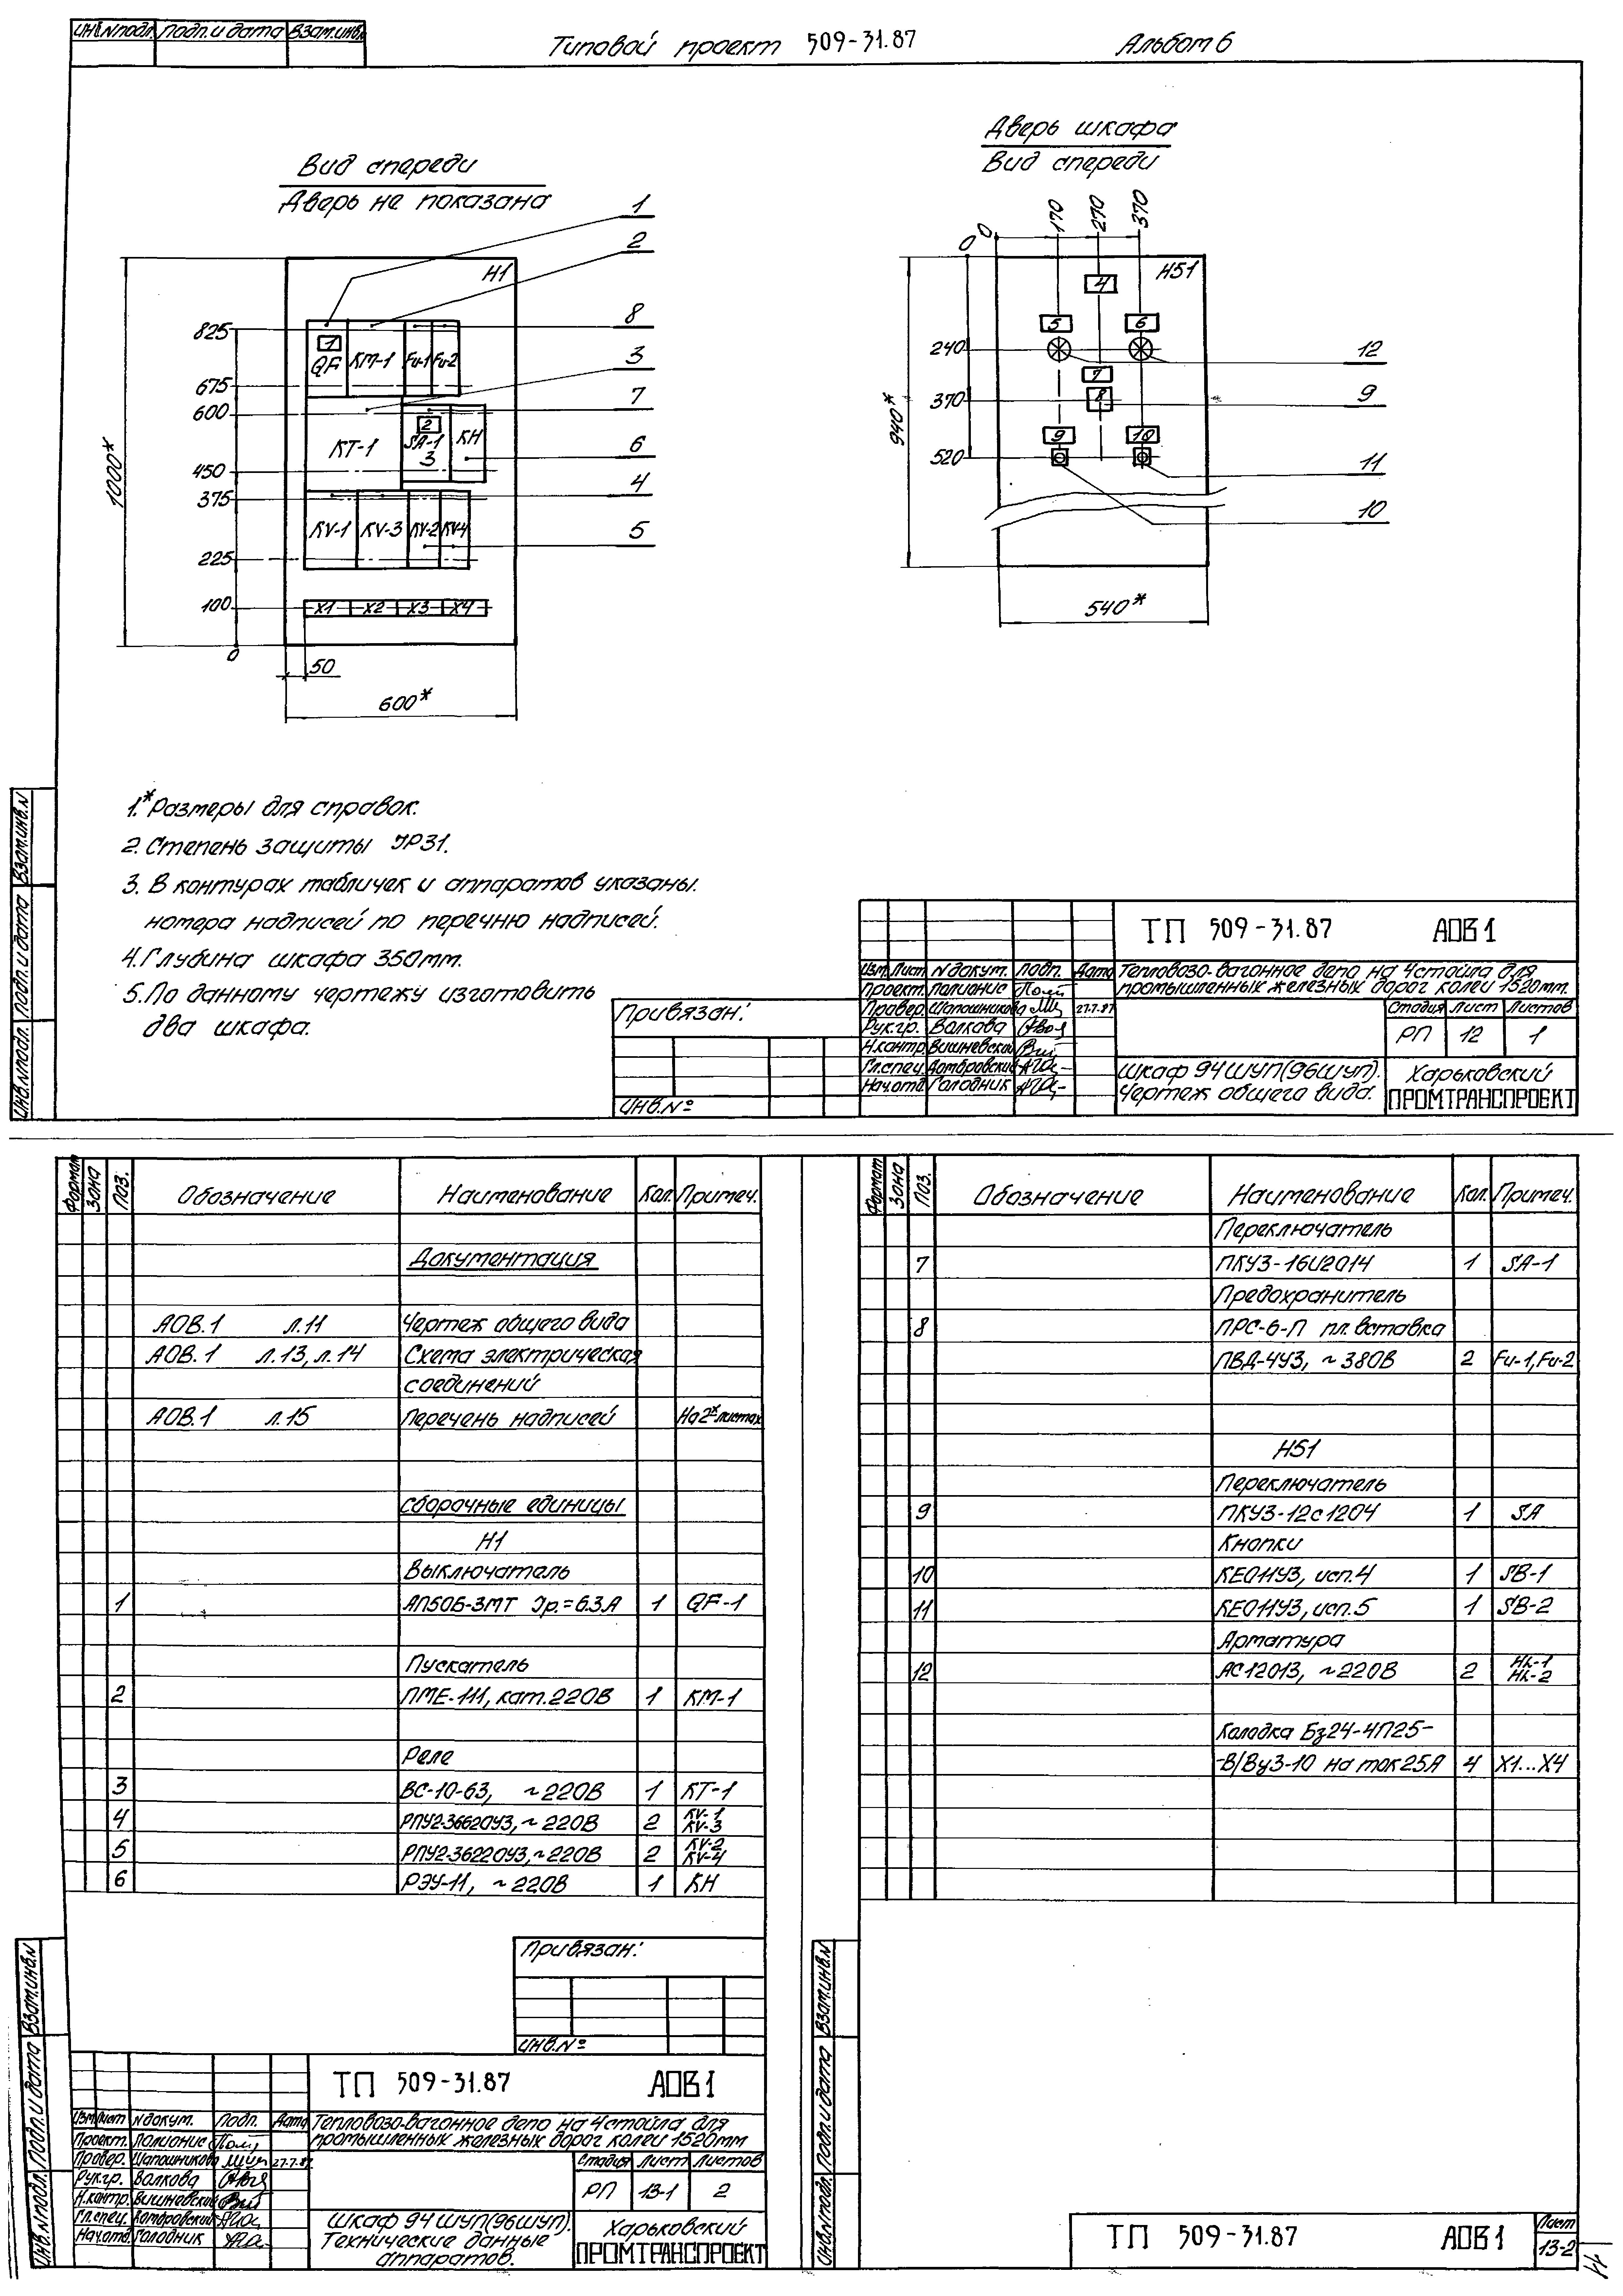 Инв.Nподл. Подп. и дата Взам.инв.
Типовой проект 509-31.87 Альбом 6
Вид спереди
Дверь не показана
Н1
1
2
8
3
7
6
4
5
825
675
600
450
375
225
100
0
1000*
1
QF
КМ-1
Fu-1
Fu-2
КТ-1
2
SA-1
3
КН
KV-1
KV-3
KV-2
KV-4
X1 X2 X3 X4
50
600*
Дверь шкафа
Вид спереди
0 170 270 370
0
240
370
520
940*
Н51
4
5
6
7
8
9
10
12
9
11
10
540*
1.* Размеры для справок.
2. Степень защиты IP31.
3. В контурах табличек и аппаратов указаны
номера надписей по перечню надписей.
4. Глубина шкафа 350мм.
5. По данному чертежу изготовить
два шкафа.
Взам.инв.N
Подп. и дата
Инв.Nподл.
Привязан:
Инв.Nº
ТП 509-31.87 АОВ1
Изм. Лист N докум. Подп. Дата
Проект. Полионис
Провер. Шапошникова 27.7.87
Рук.гр. Волкова
Н.контр. Вишневская
Гл.спец. Домбровский
Нач.отд. Голодник
Тепловозо-вагонное депо на 4 стойла для
промышленных железных дорог колеи 1520мм.
Стадия Лист Листов
РП 12 1
Шкаф 94 ШУП(96ШУП).
Чертеж общего вида.
Харьковский
ПРОМТРАНСПРОЕКТ
Формат Зона Поз. Обозначение Наименование Кол. Примеч.
Документация
АОВ.1 л.11 Чертеж общего вида
АОВ.1 л.13, л.14 Схема электрическая
соединений
АОВ.1 л.15 Перечень надписей На 2х листах
Сборочные единицы
Н1
Выключатель
1 АП50Б-3МТ Iр.=6.3А 1 QF-1
Пускатель
2 ПМЕ-111, кат.220В 1 КМ-1
Реле
3 ВС-10-63, ~220В 1 КТ-1
4 РПУ2-36620У3, ~220В 2 KV-1
KV-3
5 РПУ2-36220У3, ~220В 2 KV-2
KV-4
6 РЭУ-11, ~220В 1 КН
Взам.инв.N
Подп. и дата
Инв.Nподл.
Привязан:
Инв.Nº
ТП 509-31.87 АОВ1
Изм. Лист N докум. Подп. Дата
Проект. Полионис
Провер. Шапошникова 27.7.87
Рук.гр. Волкова
Н.контр. Вишневская
Гл.спец. Домбровский
Нач.отд. Голодник
Тепловозо-вагонное депо на 4 стойла для
промышленных железных дорог колеи 1520мм
Стадия Лист Листов
РП 13-1 2
Шкаф 94 ШУП(96ШУП).
Технические данные
аппаратов.
Харьковский
ПРОМТРАНСПРОЕКТ
Формат Зона Поз. Обозначение Наименование Кол. Примеч.
Переключатель
7 ПКУ3-16И2014 1 SA-1
Предохранитель
8 ПРС-6-П пл.вставка
ПВД-4У3, ~380В 2 Fu-1, Fu-2
Н51
Переключатель
9 ПКУ3-12с1204 1 SA
Кнопки
10 КЕ011У3, исп.4 1 SB-1
11 КЕ011У3, исп.5 1 SB-2
Арматура
12 АС12013, ~220В 2 HL-1
HL-2
Колодка Бз24-4П25-
-В/Ву3-10 на ток 25А 4 X1...X4
Взам.инв.N
Подп. и дата
Инв.Nподл.
ТП 509-31.87 АОВ1
Лист
13-2